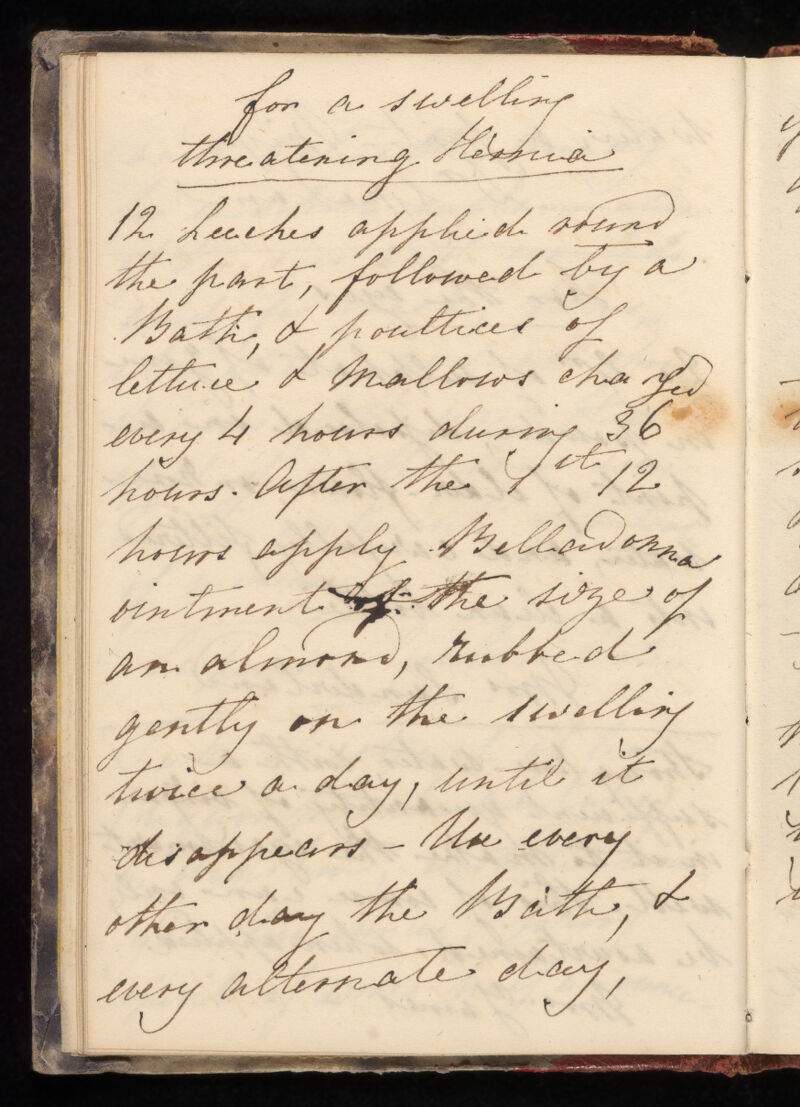 for a swelling
threatening Hernia
12 Leeches applied round
the part, followed by a
Bath, & poultices of
lettuce & Mallows changed
every 4 hours during 36
hours. After the 1st 12
hours apply Belladonna
ointment the size of
an almond, rubbed
gently on the swelling
twice a day, until it
disappears - Use every
other day the Bath, &
every alternate day,